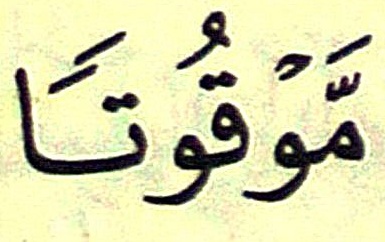 مَّوْقُوتًا